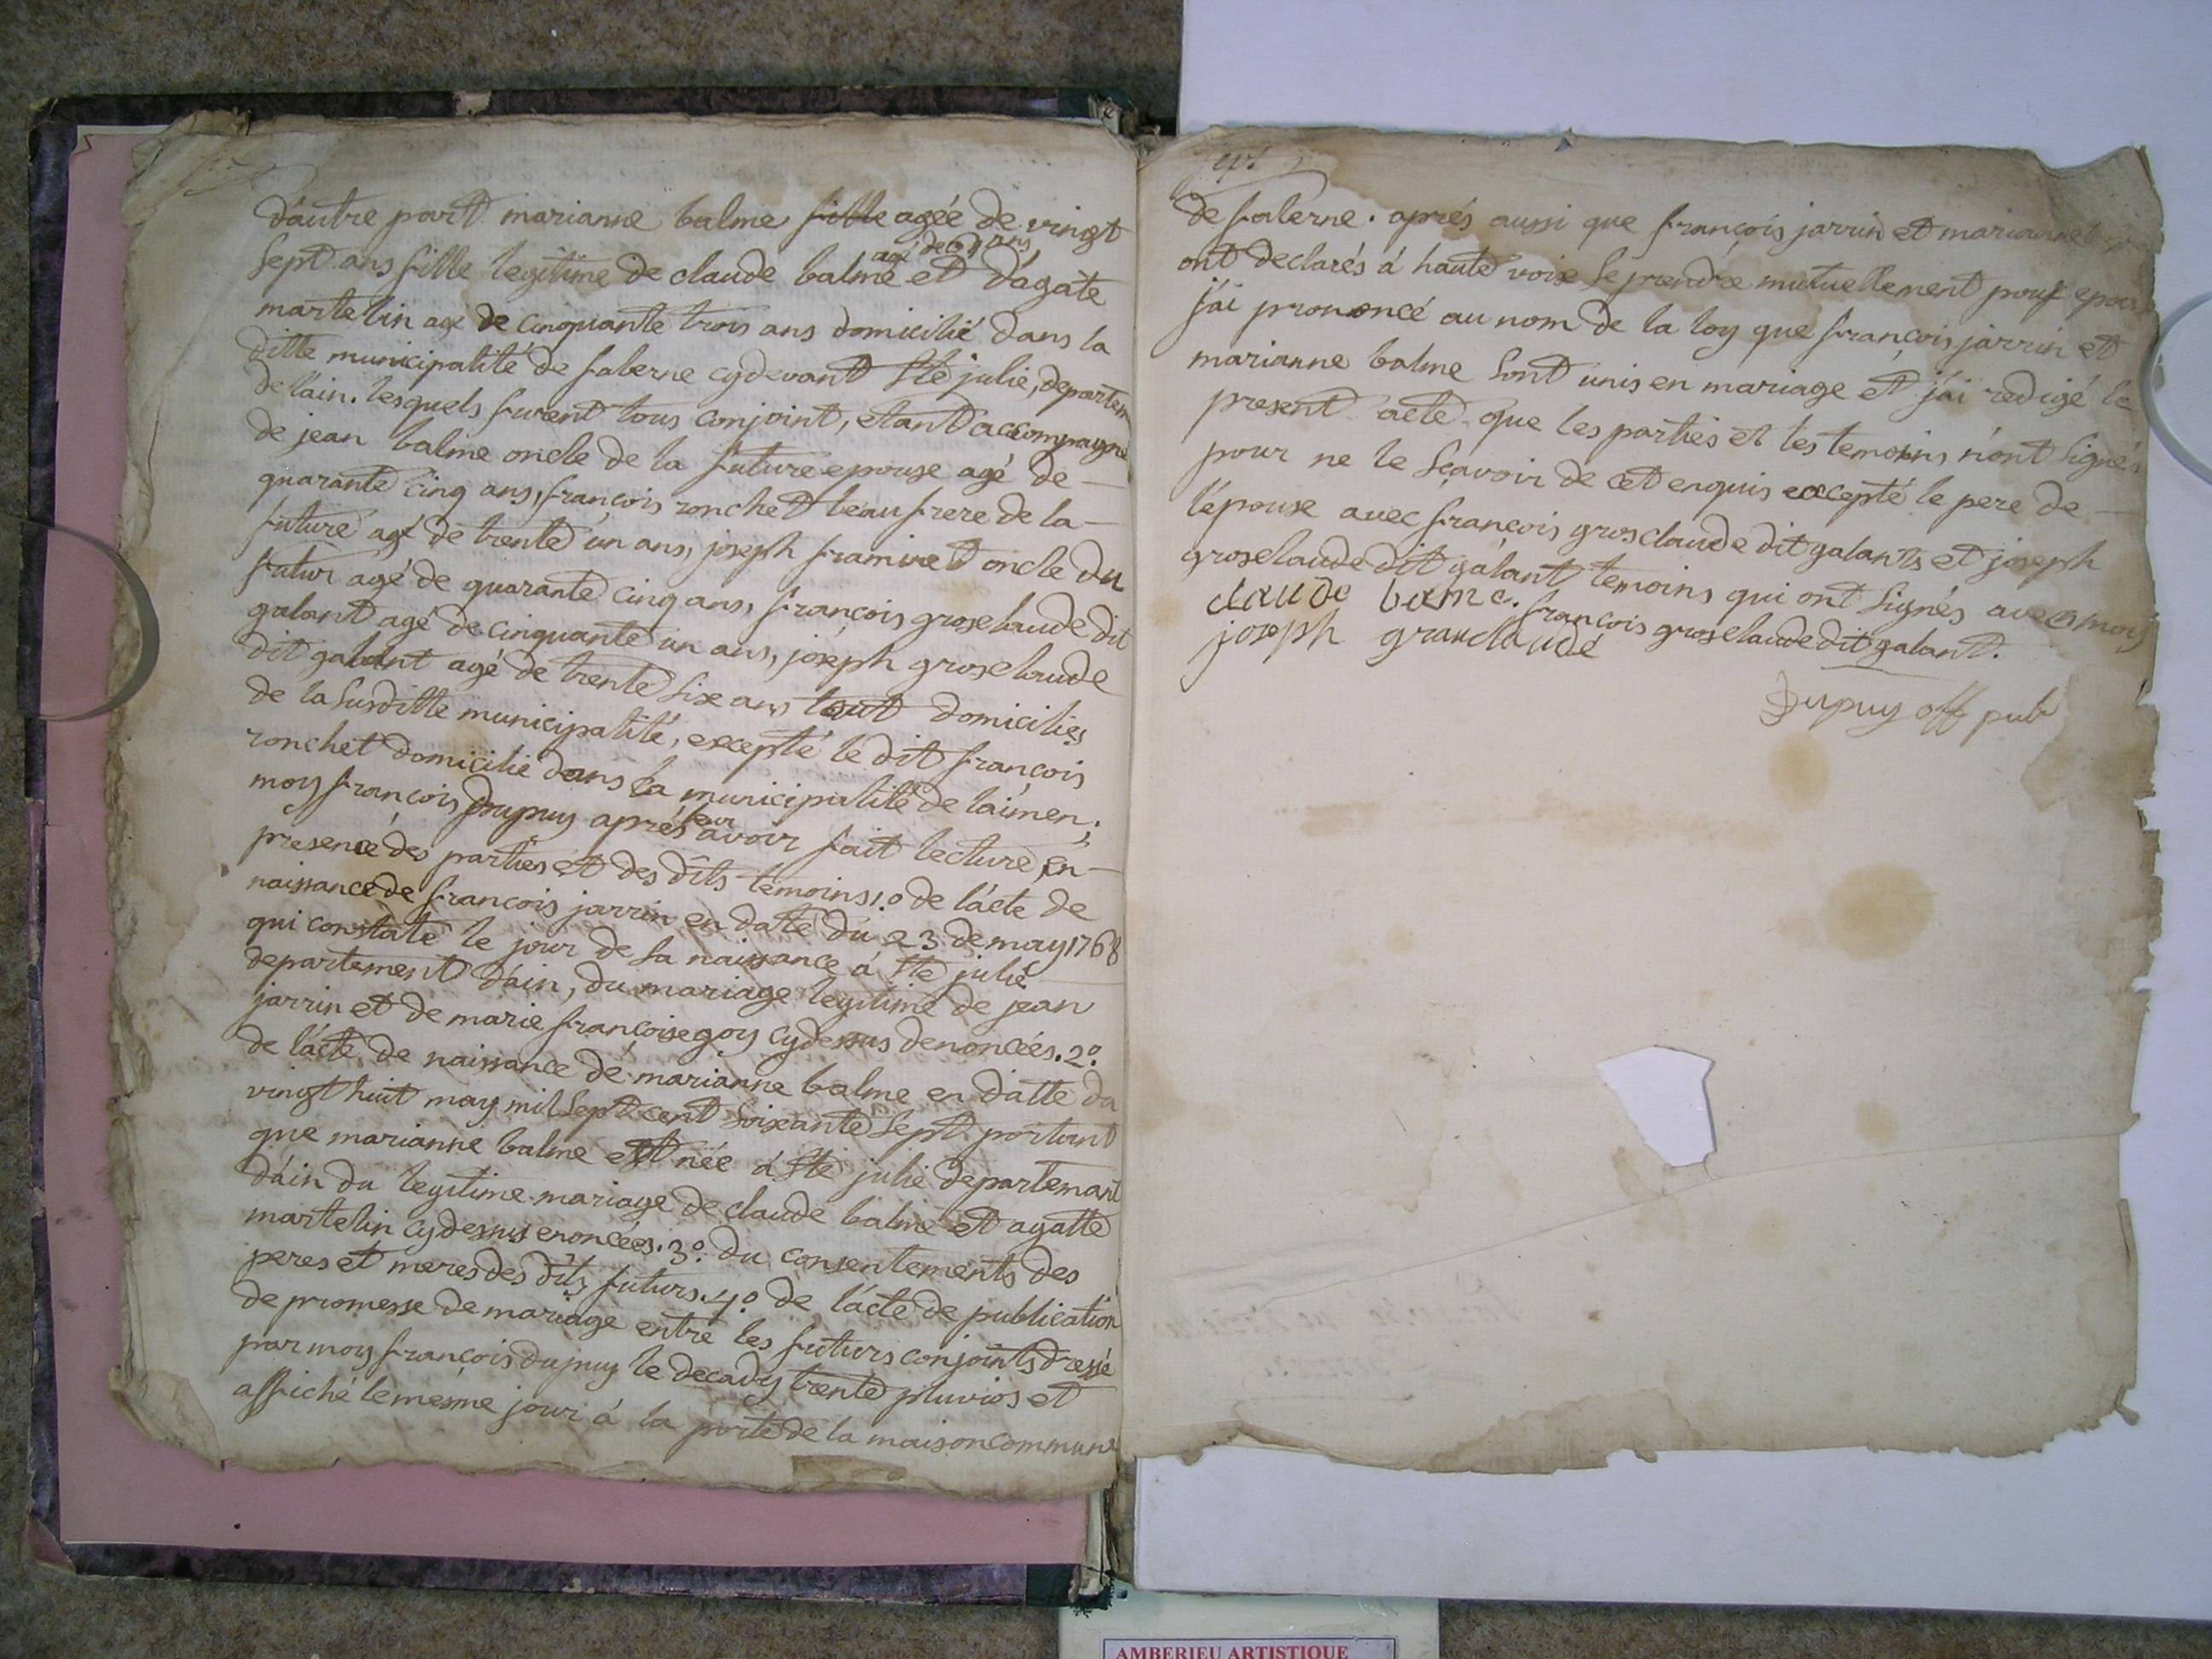 d'autre part marianne balme fille agée de vingt
agé de 61 ans
sept ans fille legitime de claude balme et d'agate
martelin agé de cinquante trois ans domicilié dans la
ditte municipalité de salerne cydevant Ste julie, departem
de lain. lesquels furent tous conjoint, etant accompagné
de jean balme oncle de la future epouse agé de —
quarante cinq ans, françois ronchet beau frere de la —
future agé de trente un ans, joseph framinet oncle du
futur agé de quarante cinq ans, françois grosclaude dit
galant agé de cinquante un ans, joseph grosclaude
dit galant agé de trente six ans tout domiciliés
de la susditte municipalité, excepté le dit françois
ronchet domicilié dans la municipalité de laimen;
moy françois Dupuy aprés leur avoir fait lecture en —
presence des parties et des dits temoins 1.º de lácte de
naissance de françois jarrin en date du 23 de may 1768
qui constate le jour de sa naissance á Ste julie
departement dáin, du mariage legitime de jean
jarrin et de marie françoise goy cydessus denoncées. 2º.
de lácte de naissance de marianne balme en datte du
vingt huit may mil sept cent soixante sept portant
que marianne balme est née á Ste julie departemant
dáin du legitime mariage de claude balme et agatte
martelin cydessus enoncées. 3º. du consentements des
peres et meres des dits futurs. 4º de lácte de publication
de promesse de mariage entre les futurs conjoints dressé
par moy françois dupuy le decady trente pluvios et
affiché le mesme jour á la porte de la maison commune
de salerne. aprés aussi que françois jarrin et marianne
ont declarés á haute voix se prendre mutuellement pour epoux
j'ái prononcé au nom de la loy que françois jarrin et
marianne balme sont unis en mariage et j'ái redigé le
present acte que les parties et les temoins n'ont signés
pour ne le sçavoir de cet enquis excepté le pere de —
l'épouse avec françois grosclaude dit galants et joseph
grosclaude dit galant temoins qui ont signés avec moy
claude bame. françois grosclaude dit galant.
joseph grauclaude
Dupuy off pub
AMBERIEU ARTISTIQUE